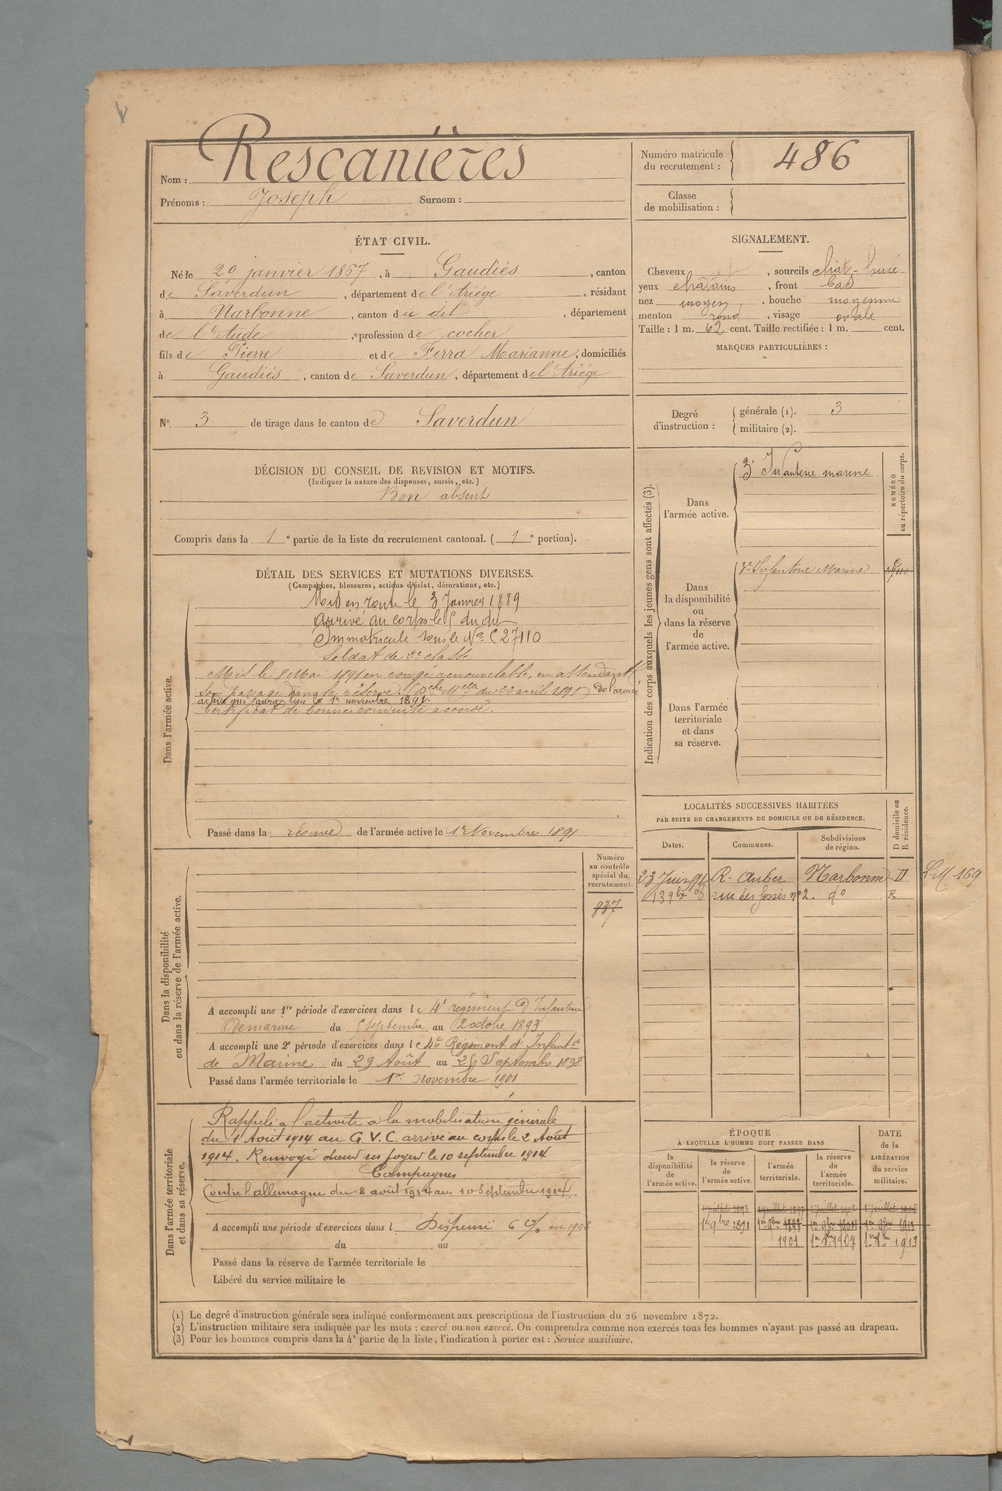 Nom : Rescanières
Prénoms : Joseph Surnom :
Numéro matricule du recrutement : 486
Classe de mobilisation :
ÉTAT CIVIL.
Né le 29 janvier 1867, à Gaudiès, canton
de Saverdun, département de l'Ariège, résidant
à Narbonne, canton du dit, département
de l'Aude, profession de cocher
fils de Pierre et de Ferra Marianne, domiciliés
à Gaudiès, canton de Saverdun, département de l'Ariège
N° 3 de tirage dans le canton de Saverdun
SIGNALEMENT.
Cheveux et, sourcils chât-foncé
yeux chatains, front bas
nez moyen, bouche moyenne
menton rond, visage ovale
Taille : 1 m. 62 cent. Taille rectifiée : 1 m. cent.
MARQUES PARTICULIÈRES :
Degré d'instruction : générale (1). 3
militaire (2).
DÉCISION DU CONSEIL DE REVISION ET MOTIFS.
(Indiquer la nature des dispenses, sursis, etc.)
Bon absent
Compris dans la 1e partie de la liste du recrutement cantonal. (1e portion).
DÉTAIL DES SERVICES ET MUTATIONS DIVERSES.
(Campagnes, blessures, actions d'éclat, décorations, etc.)
Dans l'armée active.
Mis en route le 3 Janvier 1889
Arrivé au corps le 5 du du
Immatriculé sous le N° C 27110
Soldat de 2e classe
Mis le 8 Mai 1891 en congé renouvelable, en attendant
son passage dans la réserve du 22 avril 1891 de l'armée
active qui aura lieu le 1er novembre 1891.
Certificat de bonne conduite accordé.
Passé dans la réserve de l'armée active le 1er Novembre 1891
Indication des corps auxquels les jeunes gens sont affectés (3).
NUMÉRO au répertoire du corps.
Dans l'armée active.
3e Infanterie marine
Dans la disponibilité ou dans la réserve de l'armée active.
Infanterie Marine
Dans l'armée territoriale et dans sa réserve.
LOCALITÉS SUCCESSIVES HABITÉES
PAR SUITE DE CHANGEMENTS DE DOMICILE OU DE RÉSIDENCE.
D domicile ou R résidence.
Dates. Communes. Subdivisions de région.
23 Juin 91 R. Auber Narbonne D
rue des fossés n° 2. do R
Dans la disponibilité ou dans la réserve de l'armée active.
Numéro au contrôle spécial du recrutement.
837
A accompli une 1re période d'exercices dans le 4e régiment d'Infanterie
de marine du septembre au 2 octobre 1893
A accompli une 2e période d'exercices dans le 4e Régiment d'Infantie
de Marine du 29 Août au 25 Septembre 1898
Passé dans l'armée territoriale le 1er novembre 1901
Dans l'armée territoriale et dans sa réserve.
Rappelé à l'activité à la mobilisation générale
du 1 Août 1914 au G.V.C. arrivé au corps le 2 Août
1914. Renvoyé dans ses foyers le 10 septembre 1914
Campagnes
Contre l'allemagne du 2 août 1914 au 10 Septembre 1914.
A accompli une période d'exercices dans l Dispensé 6 % en 1908
du au
Passé dans la réserve de l'armée territoriale le
Libéré du service militaire le
ÉPOQUE
A LAQUELLE L'HOMME DOIT PASSER DANS
DATE DE LA LIBÉRATION du service militaire.
la disponibilité de l'armée active.
la réserve de l'armée active.
l'armée territoriale.
la réserve de l'armée territoriale.
1er 9bre 1891
1901 1er 9bre 1907 1er 9bre 1913
(1) Le degré d'instruction générale sera indiqué conformément aux prescriptions de l'instruction du 26 novembre 1872.
(2) L'instruction militaire sera indiquée par les mots : exercé ou non exercé. On comprendra comme non exercés tous les hommes n'ayant pas passé au drapeau.
(3) Pour les hommes compris dans la 4e partie de la liste, l'indication à porter est : Service auxiliaire.